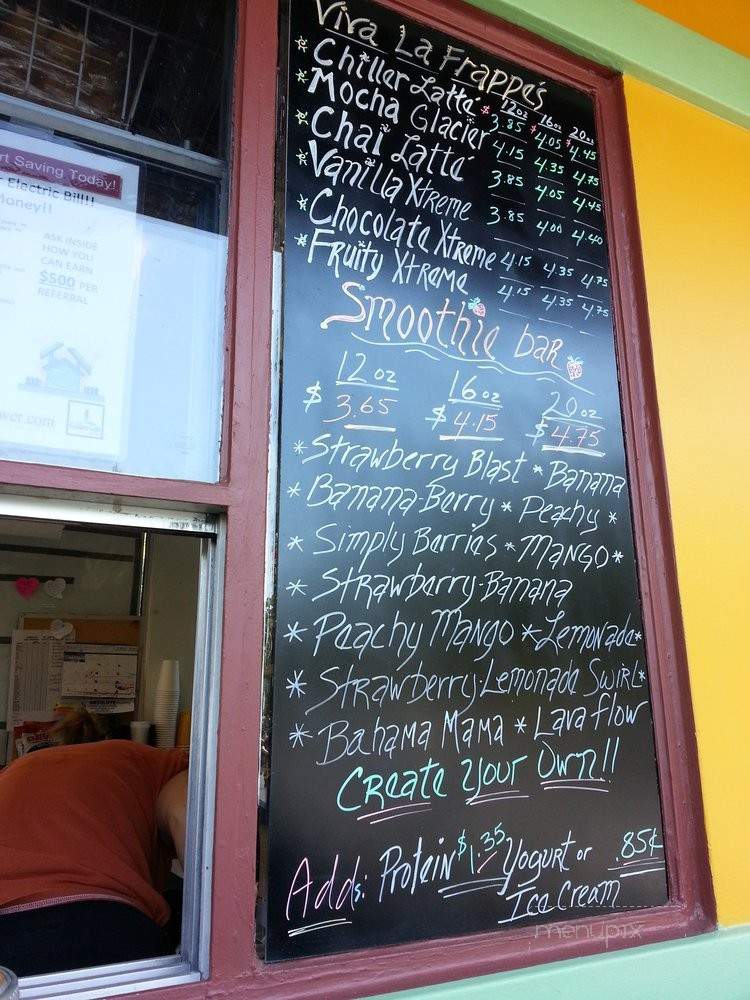 Viva La Frappe's
12oz 16oz 20oz
* Chiller Latte $3.85 $4.05 $4.45
Mocha Glacier 4.15 4.35 4.75
* Chai Latte 3.85 4.05 4.45
* Vanilla Xtreme 3.85 4.00 4.40
* Chocolate Xtreme 4.15 4.35 4.75
* Fruity Xtreme 4.15 4.35 4.75
Smoothie bar
12 oz 16 oz 20 oz
$3.65 $4.15 $4.75
* Strawberry Blast * Banana
* Banana-Berry * Peachy *
* Simply Berries * Mango *
* Strawberry-Banana
* Peachy Mango * Lemonade *
* Strawberry-Lemonade Swirl *
* Bahama Mama * Lava flow
Create your Own!!
Adds: Protein $1.35 Yogurt or .85¢
Ice Cream
rt Saving Today!
Electric Bill!!
Money!!
ASK INSIDE
HOW YOU
CAN EARN
$500 PER
REFERRAL
wer.com
menupix